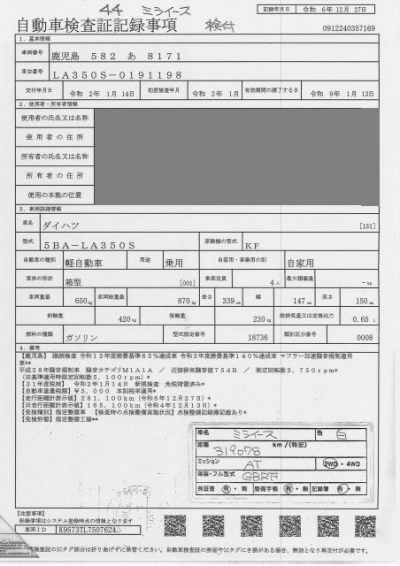 44 ミライース
記録年月日 令和 6年12月27日
自動車検査証記録事項
0912240357169
1．基本情報
車両番号 鹿児島 582 あ 8171
車台番号 LA350S-0191198
交付年月日 令和 2年 1月14日 初度検査年月 令和 2年 1月 有効期間の満了する日 令和 9年 1月13日
2．使用者・所有者情報
使用者の氏名又は名称
使用者の住所
所有者の氏名又は名称
所有者の住所
使用の本拠の位置
3．車両詳細情報
車名 ダイハツ [151]
型式 5BA-LA350S 原動機の型式 KF
自動車の種別 軽自動車 用途 乗用 自家用・事業用の別 自家用
車体の形状 箱型 [001] 乗車定員 4人 最大積載量 -kg
車両重量 650kg 車両総重量 870kg 長さ 339cm 幅 147cm 高さ 150cm
前軸重 420kg 後軸重 230kg 総排気量又は定格出力 0.65 L
燃料の種類 ガソリン 型式指定番号 18736 類別区分番号 0008
4．備考
【鹿児島】 継続検査 令和12年度燃費基準85%達成車 令和2年度燃費基準140%達成車 マフラー加速騒音規制適用
車**
平成28年騒音規制車 騒音カテゴリM1A1A ／ 近接排気騒音値75dB ／ 測定回転数3，750rpm*
[31年度税制] 令和2年1月14日 新規検査 免税措置済み*
[自動車重量税額] ¥5，000 本則税率適用*
[走行距離計表示値] 281，100km（令和6年12月27日）*
[旧走行距離計表示値] 165，100km（令和4年12月13日）*
[受検種別] 指定整備車 【検査時の点検整備実施状況】点検整備記録簿記載あり*
[受検形態] 指定整備工場**
車名 ミライース 色 白
距離 319078 km / (特記)
ミッション AT 2WD・4WD
保証書 有・無 整備手帳 有・無 記録簿 有・無
【注意事項】
記録事項はシステム登録時点の情報となります
車両ID K9573TL7507624